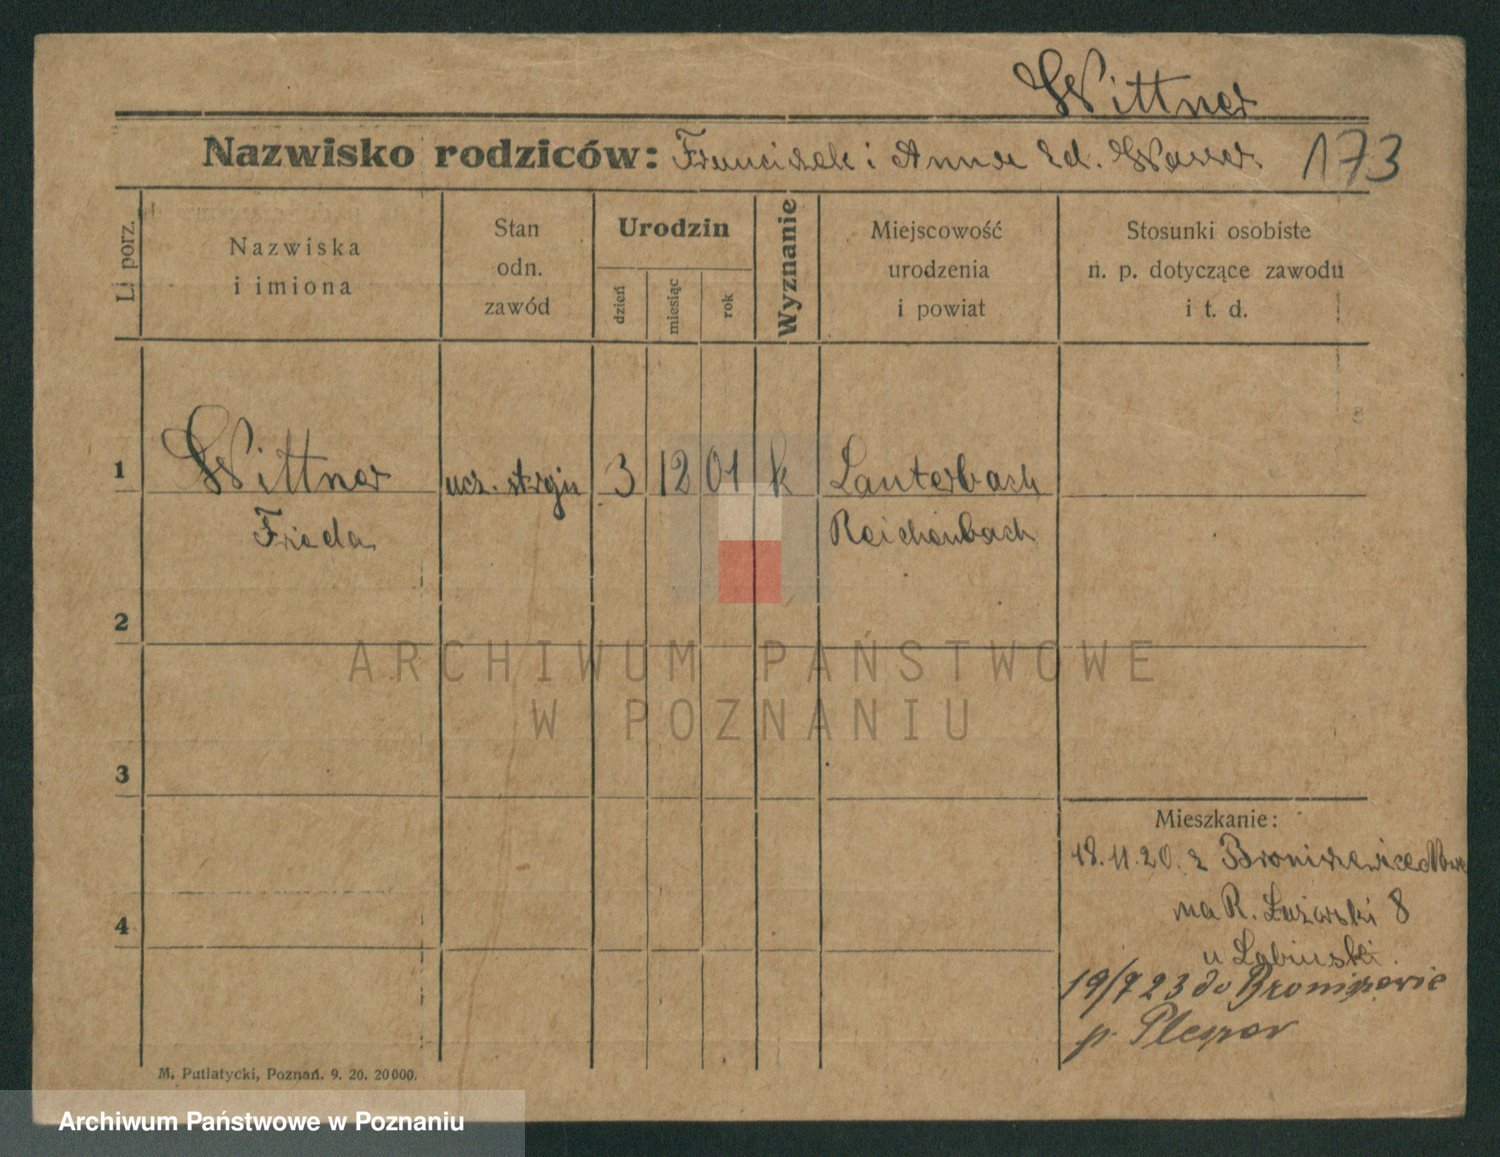 Wittner
Nazwisko rodziców: Franciszek i Anna zd. Wasser 173
L. porz.
Nazwiska
i imiona
Stan
odn.
zawód
Urodzin
dzień
miesiąc
rok
Wyznanie
Miejscowość
urodzenia
i powiat
Stosunki osobiste
n. p. dotyczące zawodu
i t. d.
1 Wittner ucz. 3 12 01 k Lauterbach
Frieda Reichenbach
2
ARCHIWUM PAŃSTWOWE
W POZNANIU
3
Mieszkanie:
18.11.20. z Broniszewice
na R. 8
4
u Łabiński.
19/7 23 do Broniszewic
p. Pleszew
M. Putiatycki, Poznań. 9. 20. 20000.
Archiwum Państwowe w Poznaniu